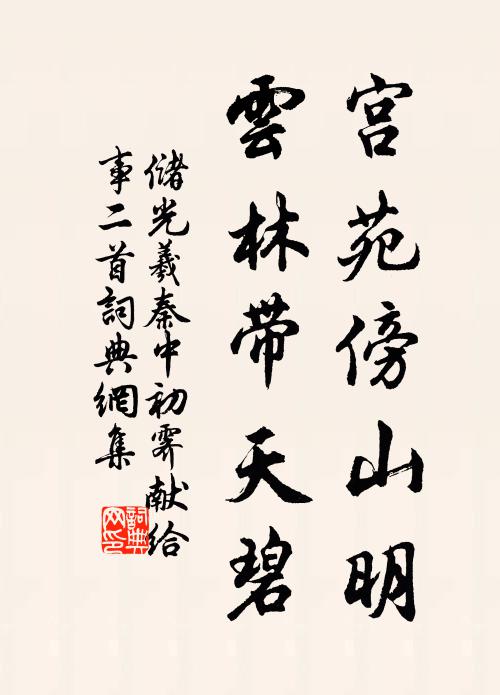 宫苑傍山明
雲林带天碧
儲光羲秦中初霽献給
事二首詞典網集
詞典
网印